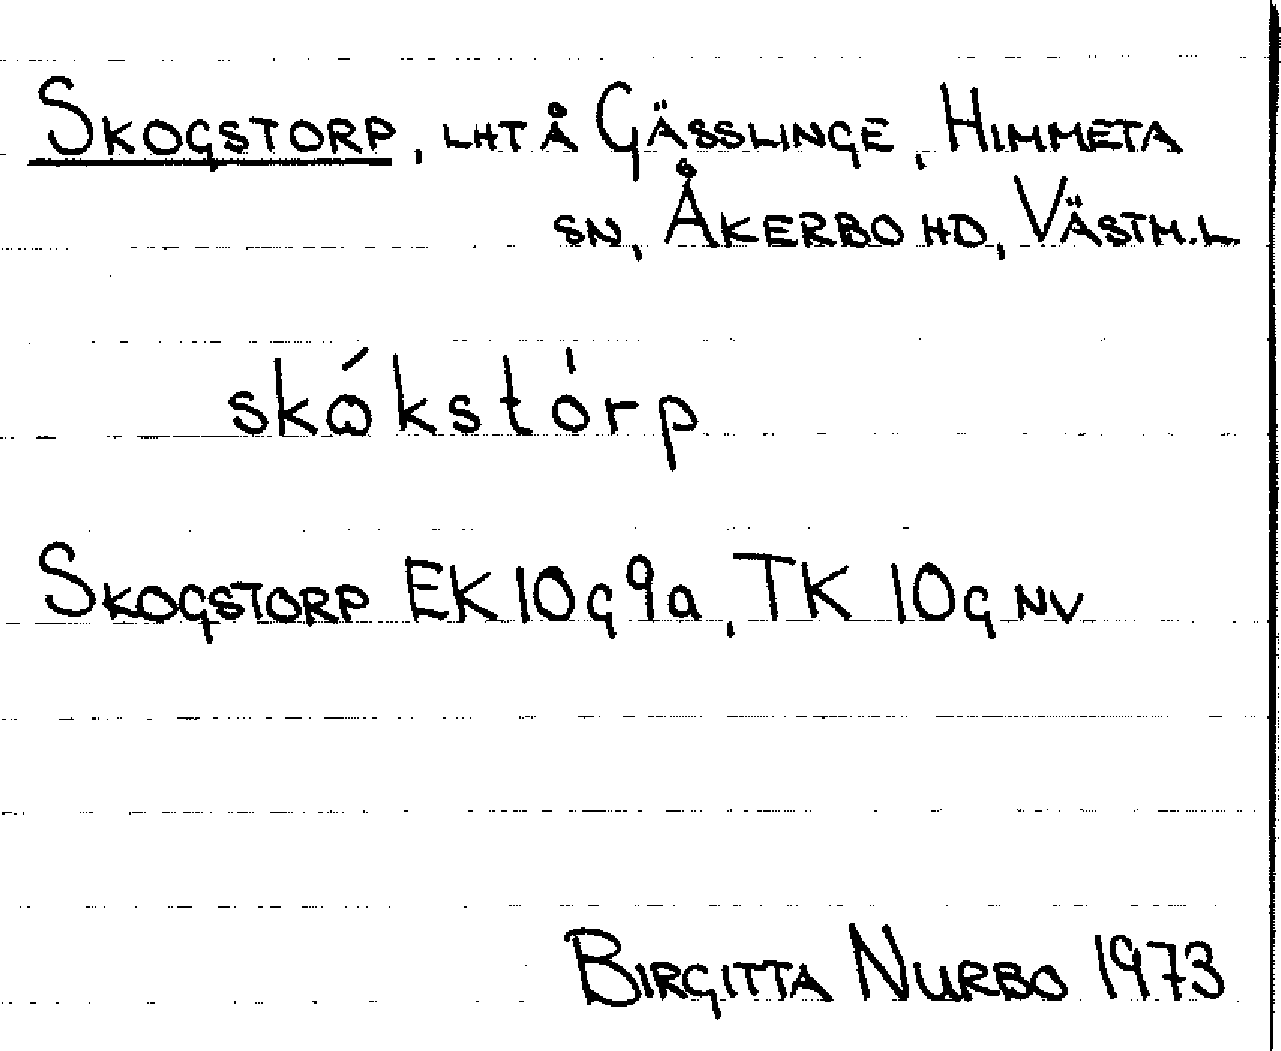 SKOGSTORP, LHT Å GÄSSLINGE, HIMMETA
SN, ÅKERBO HD, VÄSTM.L
skɷ́kstòrp
SKOGSTORP EK 10G 9a, TK 10G NV
BIRGITTA NURBO 1973